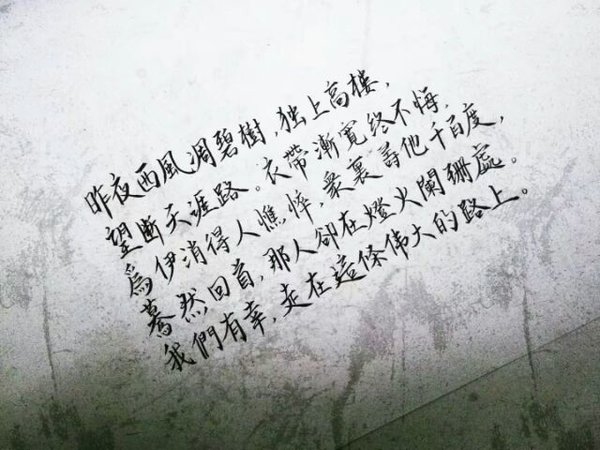 昨夜西風凋碧樹,独上高樓,
望断天涯路。衣帶漸寬終不悔,
爲伊消得人憔悴,衆裏尋他千百度,
驀然回首,那人卻在燈火闌珊處。
我們有幸,走在這條偉大的路上。